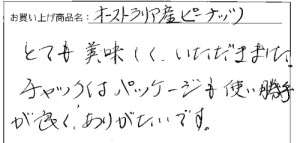 お買い上げ商品名：オーストラリア産ピーナッツ
とても美味しく、いただきました。
チャックはパッケージも使い勝手
が良く、ありがたいです。